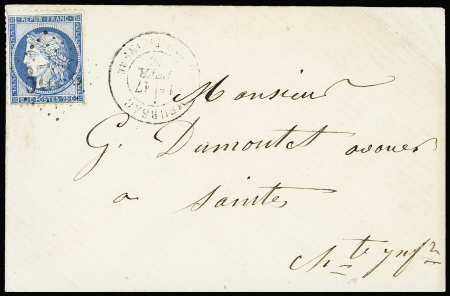 REPUB. FRANC.
25 POSTES 25
Monsieur
G. Dumontet avoué
a
Saintes
Ch.te Infre